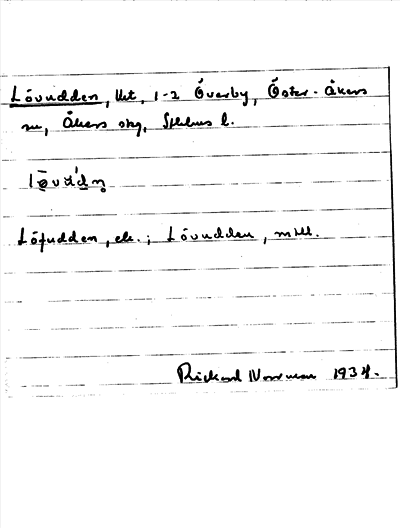 Lövudden, lht, 1-2 Överby, Öster-Åkers
sn, Åkers skg, Sthlms l.
lø̄vud̀n̥
Löfudden, ek.; Lövudden, mtbl.
Rickard Norrman 1934.